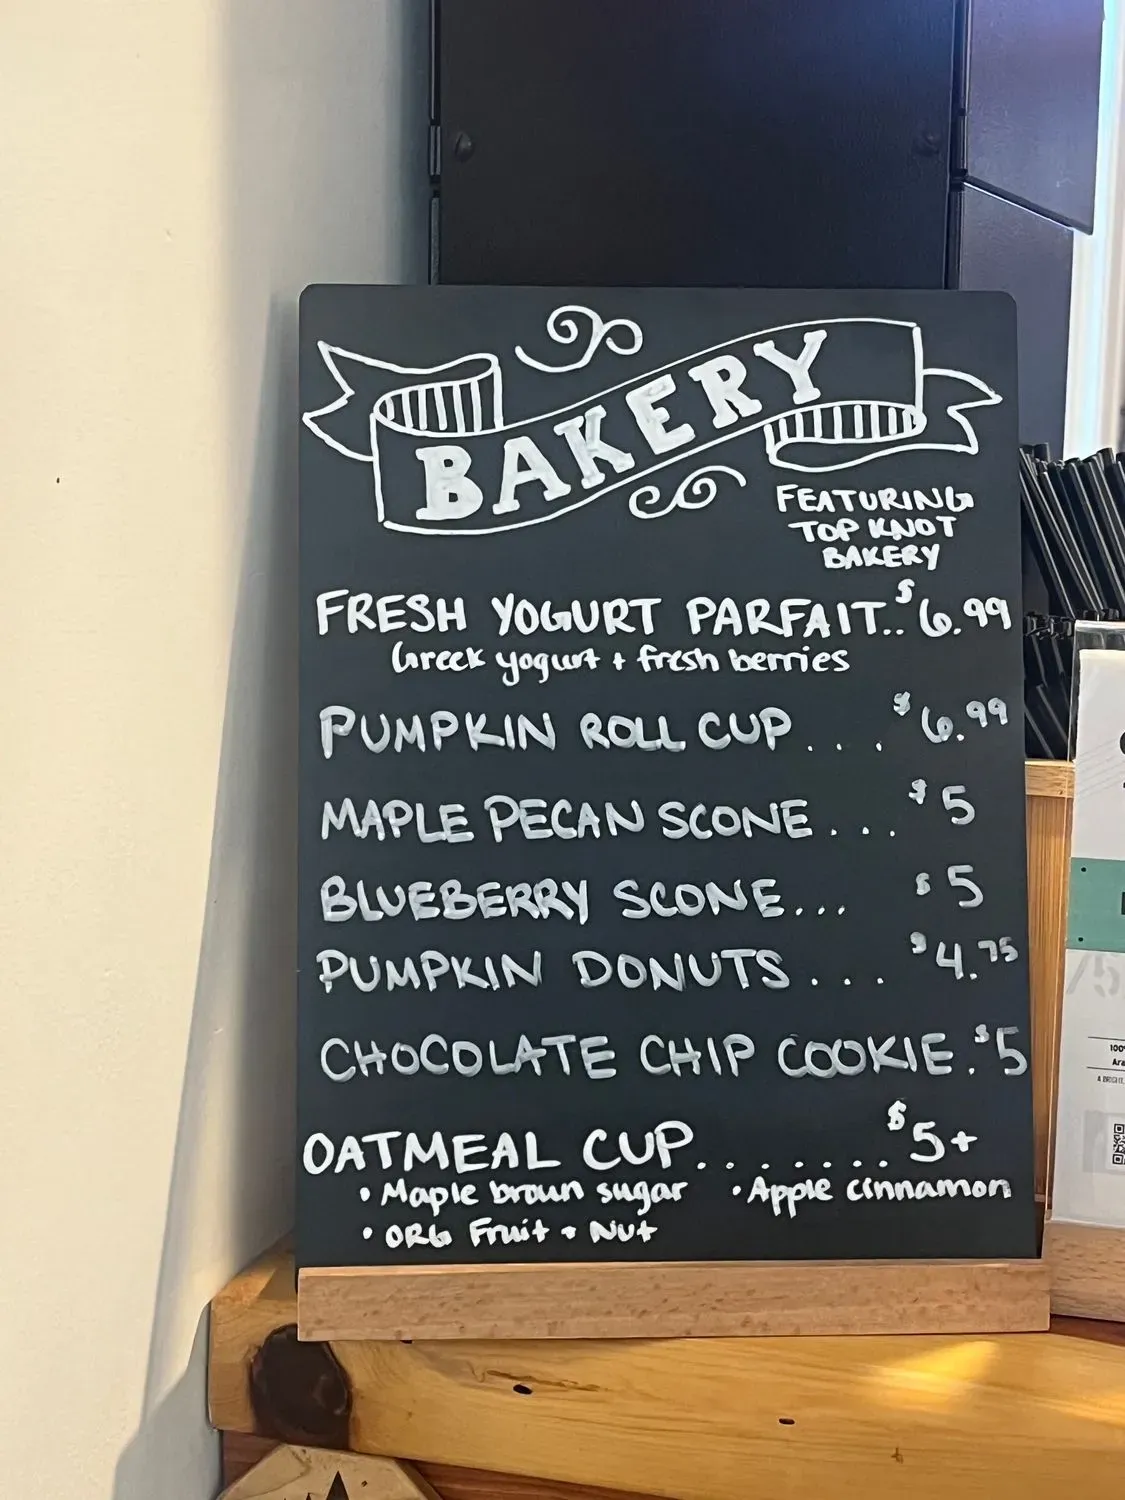 BAKERY
FEATURING
TOP KNOT
BAKERY
FRESH YOGURT PARFAIT..$6.99
Greek yogurt + fresh berries
PUMPKIN ROLL CUP....$6.99
MAPLE PECAN SCONE....$5
BLUEBERRY SCONE... $5
PUMPKIN DONUTS....$4.75
CHOCOLATE CHIP COOKIE.$5
OATMEAL CUP........$5+
• Maple brown sugar • Apple cinnamon
• ORG Fruit + Nut
100%